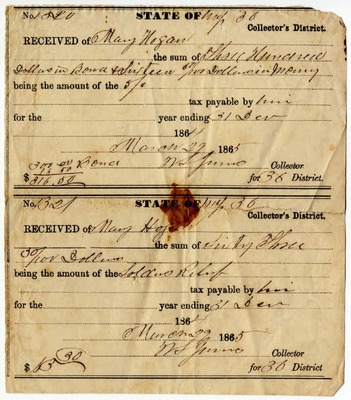 No. 1320 STATE OF 36
Collector's District.
RECEIVED of Mary Hogan
the sum of Three Hundred
Dollars in Bond & Sixteen Dollars in Money
being the amount of the 5%
tax payable by him
for the year ending 31 Dec
1864
March 29 1865
300 00 Bond
Collector
$ 316.50 for 36 District.
No. 1321 STATE OF 36
Collector's District.
RECEIVED of Mary
the sum of Sixty Three
30/100 Dollars
being the amount of the Soldiers Relief
tax payable by him
for the year ending 31 Dec
1864
March 29 1865
Collector
$ 63 30 for 36 District.